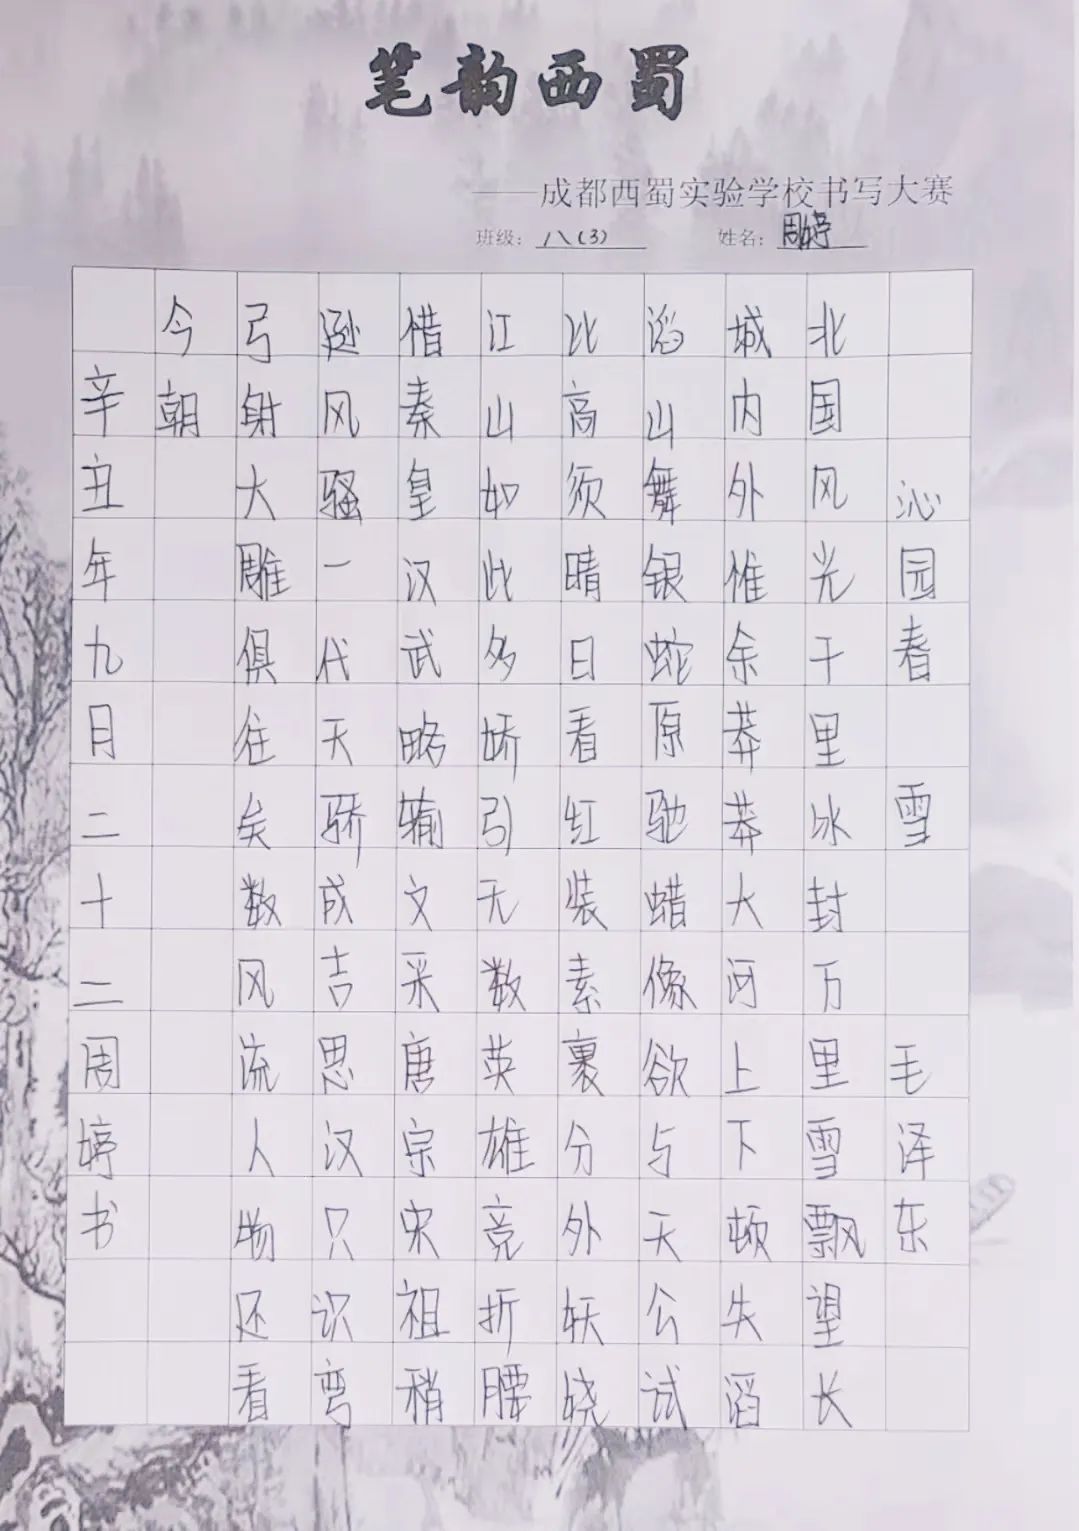 笔韵西蜀
——成都西蜀实验学校书写大赛
班级：八(3) 姓名：周婷
沁园春 雪 毛泽东
北国风光千里冰封万里雪飘望长
城内外惟余莽莽大河上下顿失滔
滔山舞银蛇原驰蜡像欲与天公试
比高须晴日看红装素裹分外妖娆
江山如此多娇引无数英雄竞折腰
借秦皇汉武略输文采唐宗宋祖稍
逊风骚一代天骄成吉思汉只识弯
弓射大雕俱往矣数风流人物还看
今朝
辛丑年九月二十二周婷书